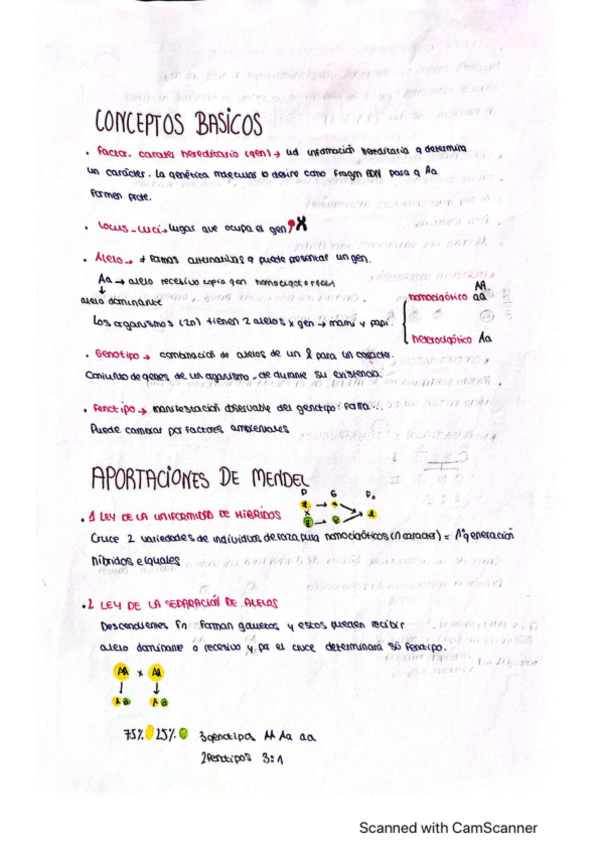 CONCEPTOS BASICOS
. Factor. caracter hereditario (gen) → ud información hereditaria q determina
un carácter. La genética molecular lo define como fragm ADN para q Aa
formen prote.
. Locus - Loci → lugar que ocupa el gen
. Alelo → ≠ formas alternativas q puede presentar un gen.
Aa → alelo recesivo
↓
alelo dominante
AA
homocigótico aa
Los organismos (2n) tienen 2 alelos x gen → mami y papi.
heterocigótico Aa
. Genotipo → combinación de alelos de un para un carácter.
Conjunto de genes de un organismo. de durante su existencia.
. Fenotipo → manifestación observable del genotipo: forma...
Puede cambiar por factores ambientales
APORTACIONES DE MENDEL
P G F1
. 1 LEY DE LA UNIFORMIDAD DE HÍBRIDOS
Cruce 2 variedades de individuos de raza pura homocigóticos (n caracter) = 1ª generación
híbridos e iguales
. 2 LEY DE LA SEPARACIÓN DE ALELOS
Descendientes forman gametos y estos pueden recibir
alelo dominante o recesivo y por el cruce determinará su fenotipo.
AA x
↓ ↓
A a A a
75% 25% 3 genotipos AA Aa aa
2 fenotipos 3:1
Scanned with CamScanner